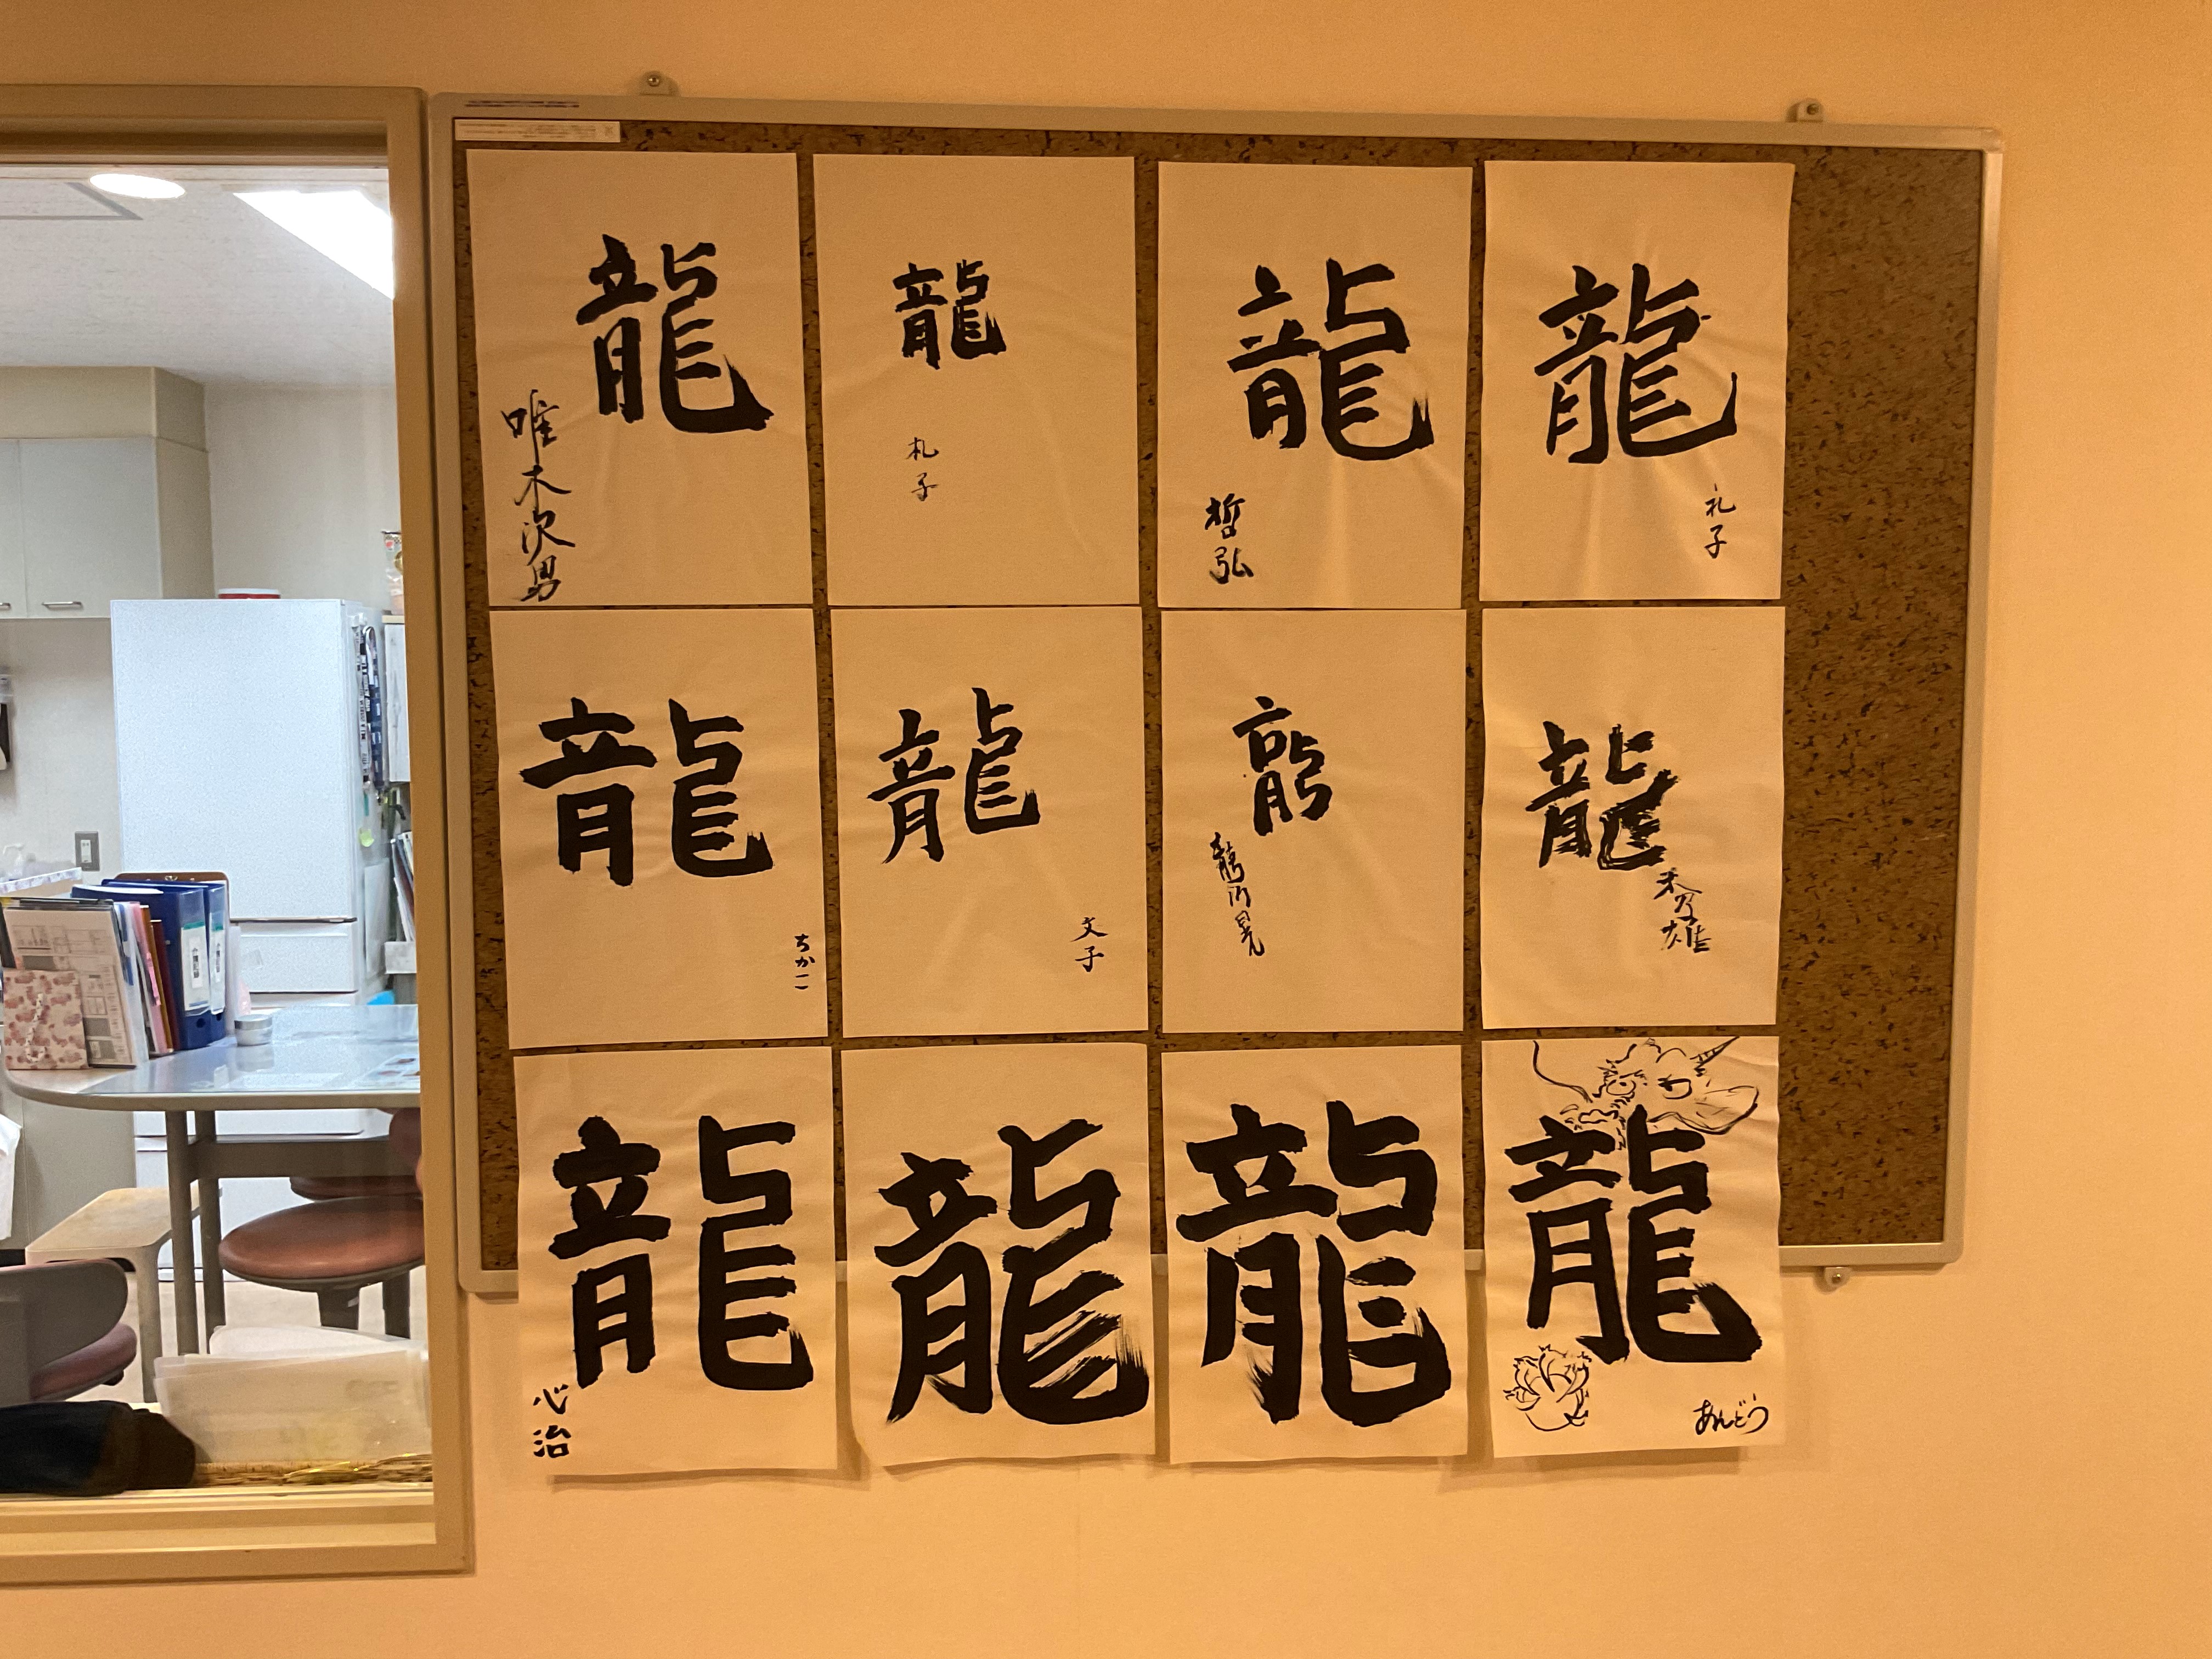 龍
唯木次男
龍
札子
龍
哲弘
龍
礼子
龍
ちか一
龍
文子
龍
龍
秀雄
龍
心治
龍
龍
龍
あんどう